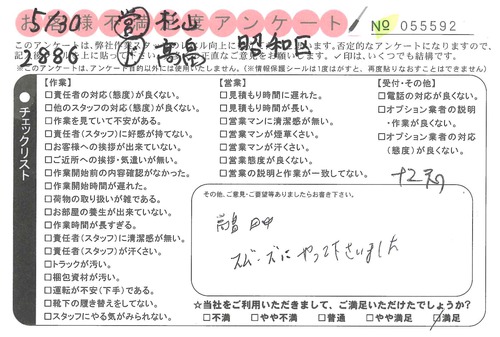 お客様不満足度アンケート
5/30 営 杉山
2886 高畠 昭和区
№ 055592
このアンケートは、弊社作業スタッフのレベル向上に
否定的なアンケートになりますので、
正直なご意見をお願いします。✓印は、いくつでも結構です。
※このアンケートは、アンケート目的以外には使用いたしません。(※情報保護シールは1度はがすと、再度貼りなおすことはできません)
チェックリスト
【作業】
□責任者の対応(態度)が良くない。
□他のスタッフの対応(態度)が良くない。
□作業を見ていて不安がある。
□責任者(スタッフ)に好感が持てない。
□お客様への挨拶が出来ていない。
□ご近所への挨拶・気遣いが無い。
□作業開始前の内容確認がなかった。
□作業開始時間が遅れた。
□荷物の取り扱いが雑である。
□お部屋の養生が出来ていない。
□作業時間が長すぎる。
□責任者(スタッフ)に清潔感が無い。
□責任者(スタッフ)が汗くさい。
□トラックが汚い。
□梱包資材が汚い。
□運転が不安(下手)である。
□靴下の履き替えをしてない。
□スタッフにやる気がみられない。
【営業】
□見積もり時間に遅れた。
□見積もり時間が長い。
□営業マンに清潔感が無い。
□営業マンが煙草くさい。
□営業マンが汗くさい。
□営業態度が良くない。
□営業の説明と作業が一致してない。
【受付・その他】
□電話の対応が良くない。
□オプション業者の説明・作業が良くない。
□オプション業者の対応(態度)が良くない。
その他、ご意見・ご要望等ありましたらお書き下さい。
スムーズにやって下さいました
☆当社をご利用いただきまして、ご満足いただけたでしょうか?
□不満 □やや不満 □普通 □やや満足 □満足